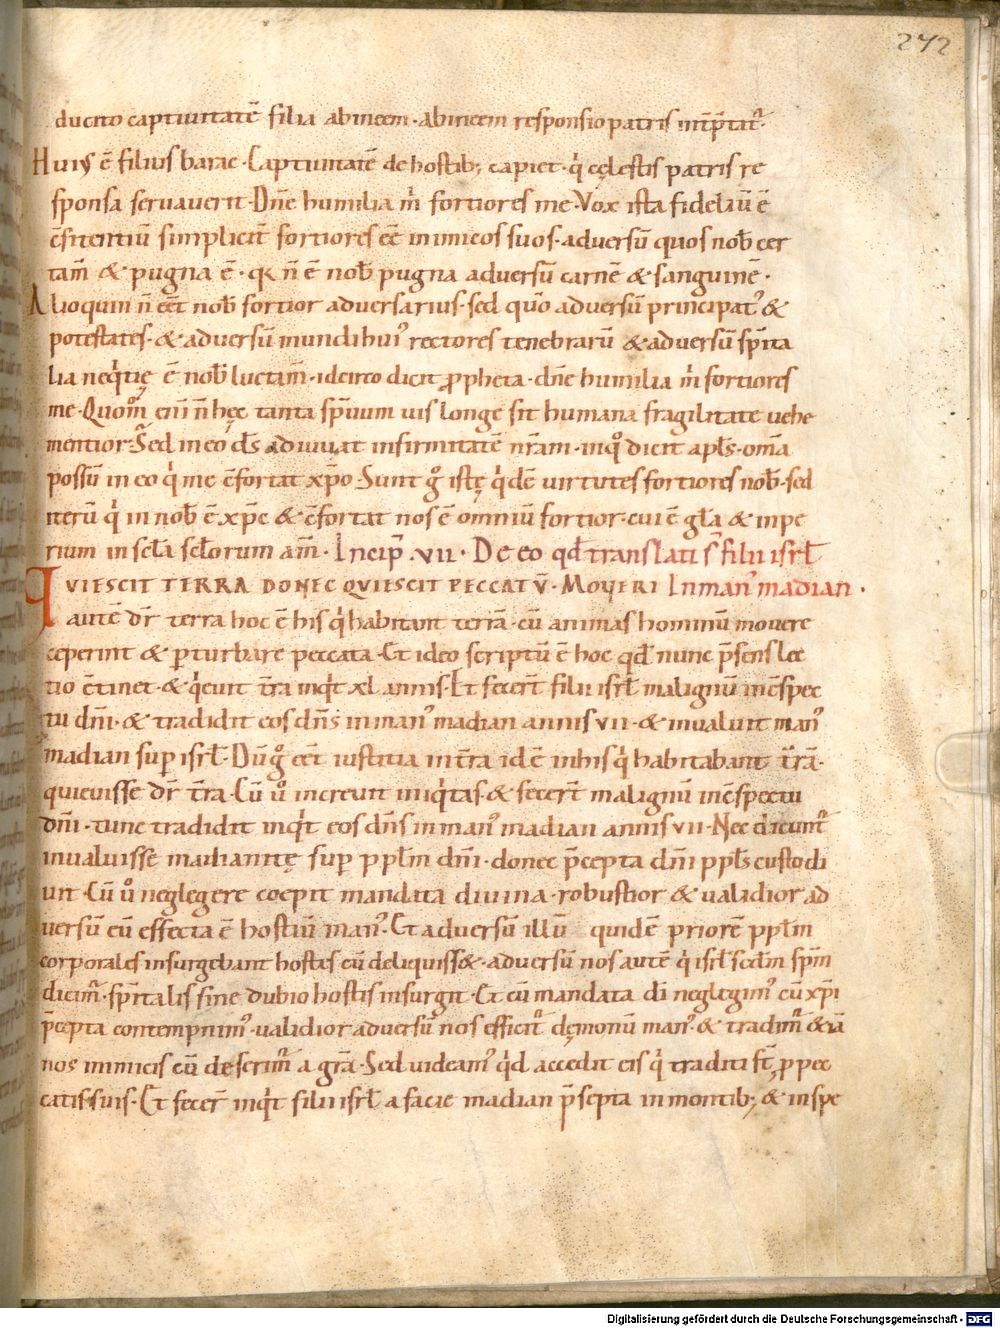 242
ducito captiuitatē filia abineem · abineem responsio patris int̄p̄tat᷑ ·
Huiꝰ ē filius barac · Captiuitatē de hostib; capiet · q̇ cęlestis patris re
sponsa seruauerit · Dn̄e humilia m̊ fortiores me · Vox ista fideliū ē
c̄fitentiū simplicit̄ fortiores eē inimicos suos · aduersū quos nob̄ cer
tam̄ & pugna ē · qꝛ n̄ ē nob̄ pugna aduersū carnē & sanguinē ·
Alioquin n̄ eēt nob̄ fortior aduersarius · sed qūo aduersū principatꝰ &
potestates · & aduersū mundi huiꝰ rectores tenebrarū & aduersū sp̄ita
lia neq̇tię ē nob̄ luctam̄ · idcirco dicit ꝓpheta · dn̄e humilia m̊ fortiores
me · Quom̄ eni n̄ hęc tanta sp̄uum uis longe sit humana fragilitate uehe
mentior · Sed in eo d̄s adiuuat infirmitatē nr̄am · in q̊ dicit apl̄s · om̄a
possū in eo q̇ me c̄fortat xp̄o · Sunt g̊ istę q̇dē uirtutes fortiores nob̄ · sed
iterū q̇ in nob̄ ē xp̄c & c̄fortat nos ē omniū fortior · cui ē gl̄a & inpe
rium in scl̄a scl̄orum am̄ · Incip̄ · VII · De eo qd̄ translati s̄ filii isrl̄
QVIESCIT TERRA DONEC QVIESCIT PECCATV̄ · MOVERI In manꝰ madian ·
autē dr̄ terra hoc ē his q̇ habitant terrā · cū animas hominū mouere
ceperint & ꝑturbare peccata · Et ideo scriptū ē hoc qd̄ nunc p̄sens lec
tio c̄tinet · & q̇euit t̄ra inq̇t xl annis · Et fecer̄t filii isrl̄ malignū in c̄spec
tu dn̄i · & tradidit eos dn̄s in manꝰ madian annis vii · & inualuit manꝰ
madian suꝑ isrl̄ · Dū g̊ eēt iustitia in t̄ra id ē in his q̇ habitabant t̄rā ·
quieuisse dr̄ t̄ra · Cū ů increuit iniq̇tas · & fecer̄t malignū in c̄spectu
dn̄i · tunc tradidit inq̇t eos dn̄s in manꝰ madian annis vii · Nec dicunt᷑
inualuisse madianitę suꝑ ppl̄m dn̄i · donec p̄cepta dn̄i ppl̄s custodi
uit · Cū ů neglegere coepit mandata diuina · robustior & ualidior ad
uersū eū effecta ē hostiū manꝰ · Et aduersū illū quidē priorē ppl̄m
corporales insurgebant hostes cū deliquiss& · aduersū nos autē q̇ isrl̄ scd̄m sp̄m
dicim᷑ · sp̄italis sine dubio hostis insurgit · Et cū mandata dī neglegimꝰ cū xp̄i
p̄cepta contempnimꝰ · ualidior aduersū nos efficit᷑ dęmonū manꝰ · & tradim᷑ &iā
nos inimicis cū deserim᷑ a gr̄a · Sed uideamꝰ q̇d accedit eis q̇ traditi s̄t ꝓ pec
catis suis · Et fecer̄ inq̇t filii isrl̄ a facie madian p̄septa in montib; & in spe
Digitalisierung gefördert durch die Deutsche Forschungsgemeinschaft - DFG